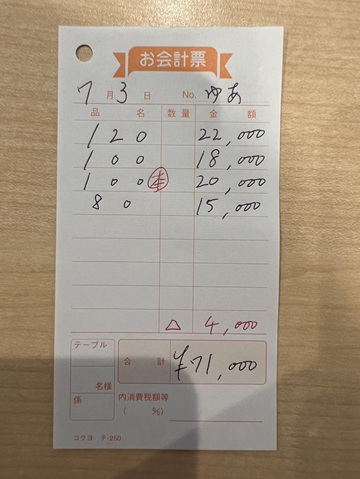 お会計票
7月3日 No. ゆあ
品名 数量 金額
120 22,000
100 18,000
100 本 20,000
80 15,000
△ 4,000
テーブル
名様
係
合計 ¥71,000
内消費税額等
( %)
コクヨ テ-250